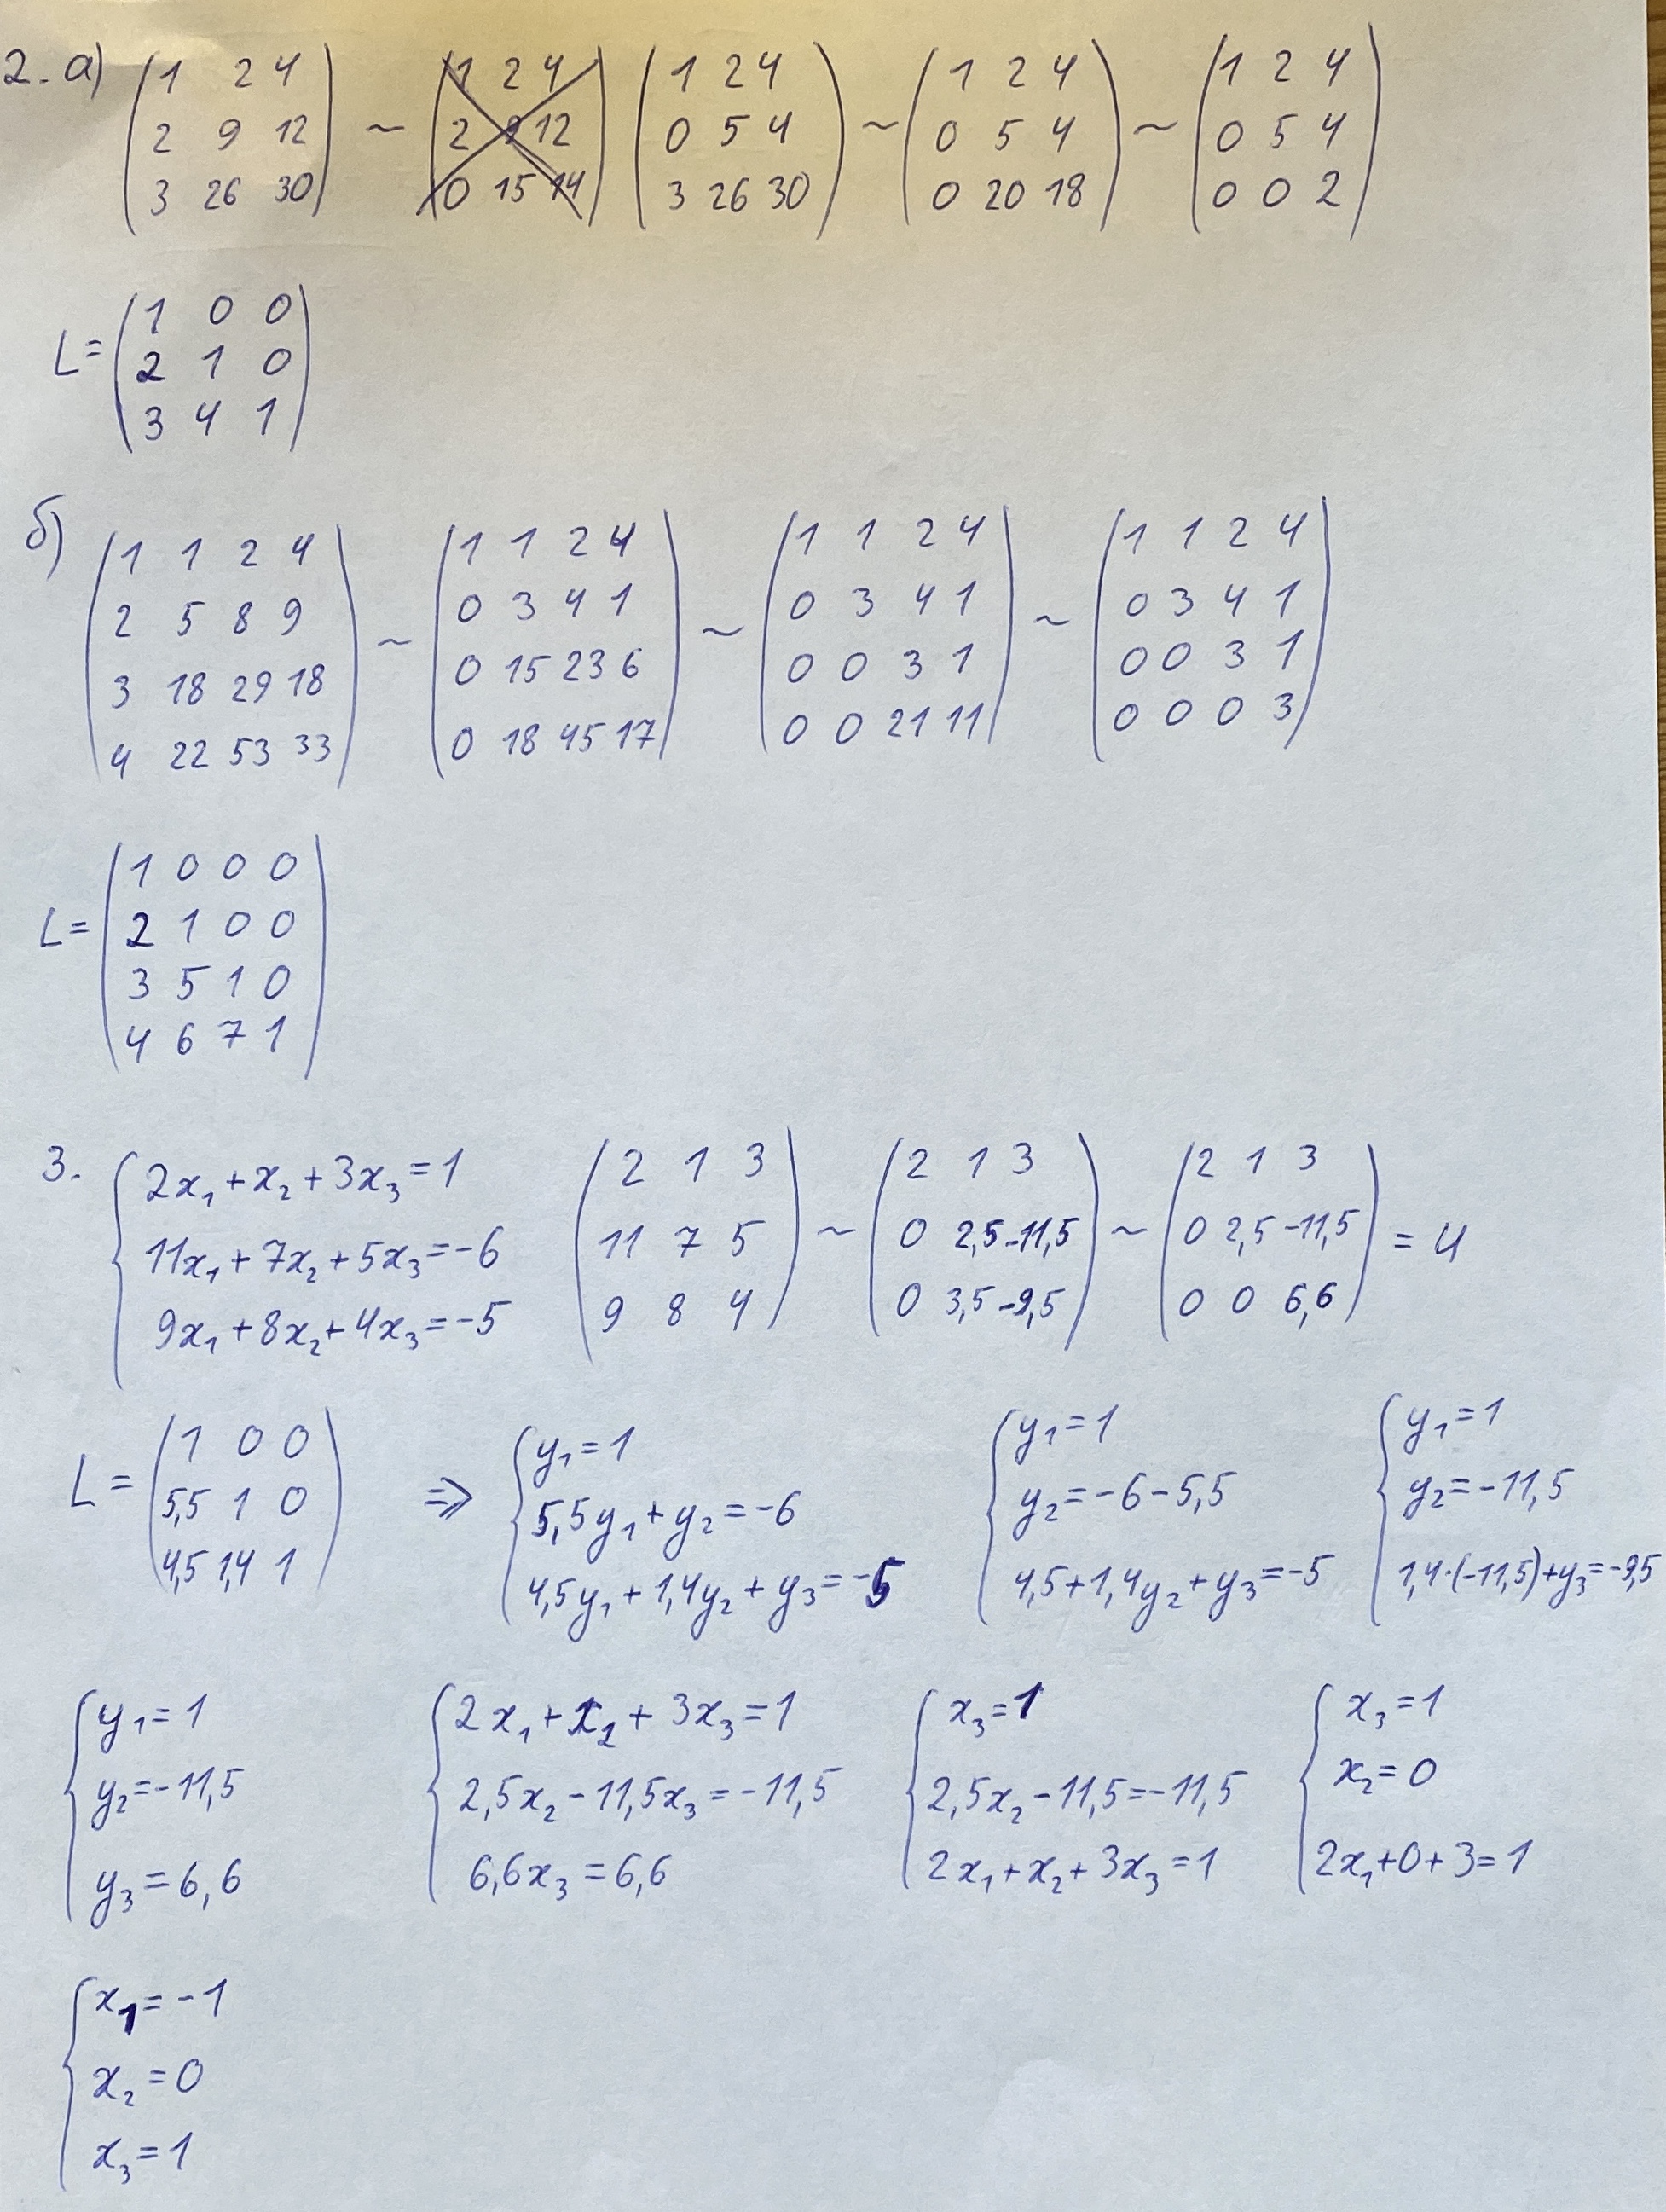 2. а) (1 2 4; 2 9 12; 3 26 30) ~ (1 2 4; 2 9 12; 0 15 14) (1 2 4; 0 5 4; 3 26 30) ~ (1 2 4; 0 5 4; 0 20 18) ~ (1 2 4; 0 5 4; 0 0 2)
L = (1 0 0; 2 1 0; 3 4 1)
б) (1 1 2 4; 2 5 8 9; 3 18 29 18; 4 22 53 33) ~ (1 1 2 4; 0 3 4 1; 0 15 23 6; 0 18 45 17) ~ (1 1 2 4; 0 3 4 1; 0 0 3 1; 0 0 21 11) ~ (1 1 2 4; 0 3 4 1; 0 0 3 1; 0 0 0 3)
L = (1 0 0 0; 2 1 0 0; 3 5 1 0; 4 6 7 1)
3. { 2x₁ + x₂ + 3x₃ = 1; 11x₁ + 7x₂ + 5x₃ = -6; 9x₁ + 8x₂ + 4x₃ = -5 (2 1 3; 11 7 5; 9 8 4) ~ (2 1 3; 0 2,5 -11,5; 0 3,5 -9,5) ~ (2 1 3; 0 2,5 -11,5; 0 0 6,6) = U
L = (1 0 0; 5,5 1 0; 4,5 1,4 1) ⇒ { y₁ = 1; 5,5y₁ + y₂ = -6; 4,5y₁ + 1,4y₂ + y₃ = -5 { y₁ = 1; y₂ = -6 - 5,5; 4,5 + 1,4y₂ + y₃ = -5 { y₁ = 1; y₂ = -11,5; 1,4·(-11,5) + y₃ = -9,5
{ y₁ = 1; y₂ = -11,5; y₃ = 6,6 { 2x₁ + x₂ + 3x₃ = 1; 2,5x₂ - 11,5x₃ = -11,5; 6,6x₃ = 6,6 { x₃ = 1; 2,5x₂ - 11,5 = -11,5; 2x₁ + x₂ + 3x₃ = 1 { x₃ = 1; x₂ = 0; 2x₁ + 0 + 3 = 1
{ x₁ = -1; x₂ = 0; x₃ = 1